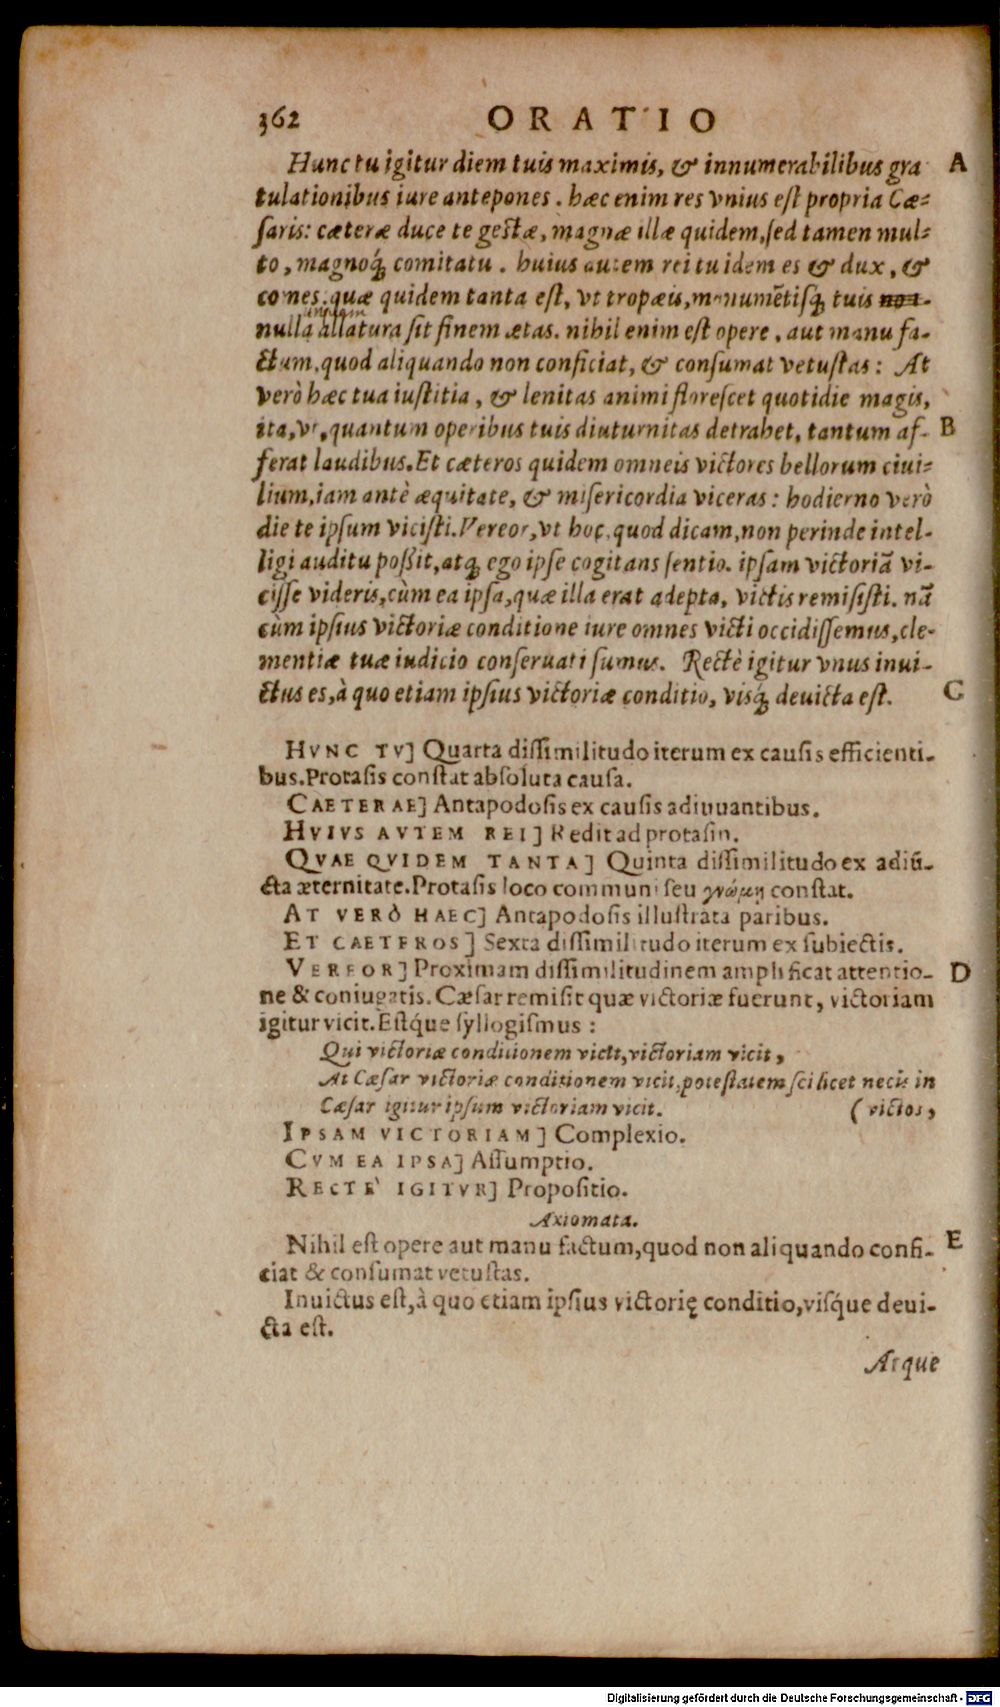 362 ORATIO
Hunc tu igitur diem tuis maximis, & innumerabilibus gra A
tulationibus iure antepones. hæc enim res vnius est propria Cæ-
saris: cæteræ duce te gestæ, magnæ illæ quidem, sed tamen mul-
to, magnoq́; comitatu. huius autem rei tu idem es & dux, &
comes: quæ quidem tanta est, vt tropæis, monumētisq́; tuis non-
unquam
nulla allatura sit finem ætas. nihil enim est opere, aut manu fa-
ctum, quod aliquando non conficiat, & consumat vetustas: At
verò hæc tua iustitia, & lenitas animi florescet quotidie magis,
ita, vt, quantum operibus tuis diuturnitas detrahet, tantum af- B
ferat laudibus. Et cæteros quidem omneis victores bellorum ciui-
lium, iam antè æquitate, & misericordia viceras: hodierno verò
die te ipsum vicisti. Vereor, vt hoc, quod dicam, non perinde intel-
ligi auditu poßit, atq́; ego ipse cogitans sentio. ipsam victoriā vi-
cisse videris, cùm ea ipsa, quæ illa erat adepta, victis remisisti. nā
cùm ipsius victoriæ conditione iure omnes victi occidissemus, cle-
mentiæ tuæ iudicio conseruati sumus. Rectè igitur vnus inui-
ctus es, à quo etiam ipsius victoriæ conditio, visq́; deuicta est. C
HVNC TV] Quarta dissimilitudo iterum ex causis efficienti-
bus. Protasis constat absoluta causa.
CAETERAE] Antapodosis ex causis adiuuantibus.
HVIVS AVTEM REI] Redit ad protasin.
QVAE QVIDEM TANTA] Quinta dissimilitudo ex adiū-
cta æternitate. Protasis loco communi seu γνώμῃ constat.
AT VERÒ HAEC] Antapodosis illustrata paribus.
ET CAETEROS] Sexta dissimilitudo iterum ex subiectis.
VEREOR] Proximam dissimilitudinem amplificat attentio- D
ne & coniugatis. Cæsar remisit quæ victoriæ fuerunt, victoriam
igitur vicit. Estq́ue syllogismus:
Qui victoriæ conditionem vicit, victoriam vicit,
At Cæsar victoriæ conditionem vicit, potestatem scilicet necis in
Cæsar igitur ipsum victoriam vicit. (victos,
IPSAM VICTORIAM] Complexio.
CVM EA IPSA] Assumptio.
RECTE` IGITVR] Propositio.
Axiomata.
Nihil est opere aut manu factum, quod non aliquando confi- E
ciat & consumat vetustas.
Inuictus est, à quo etiam ipsius victorię conditio, visq́ue deui-
cta est.
Atque
Digitalisierung gefördert durch die Deutsche Forschungsgemeinschaft - DFG